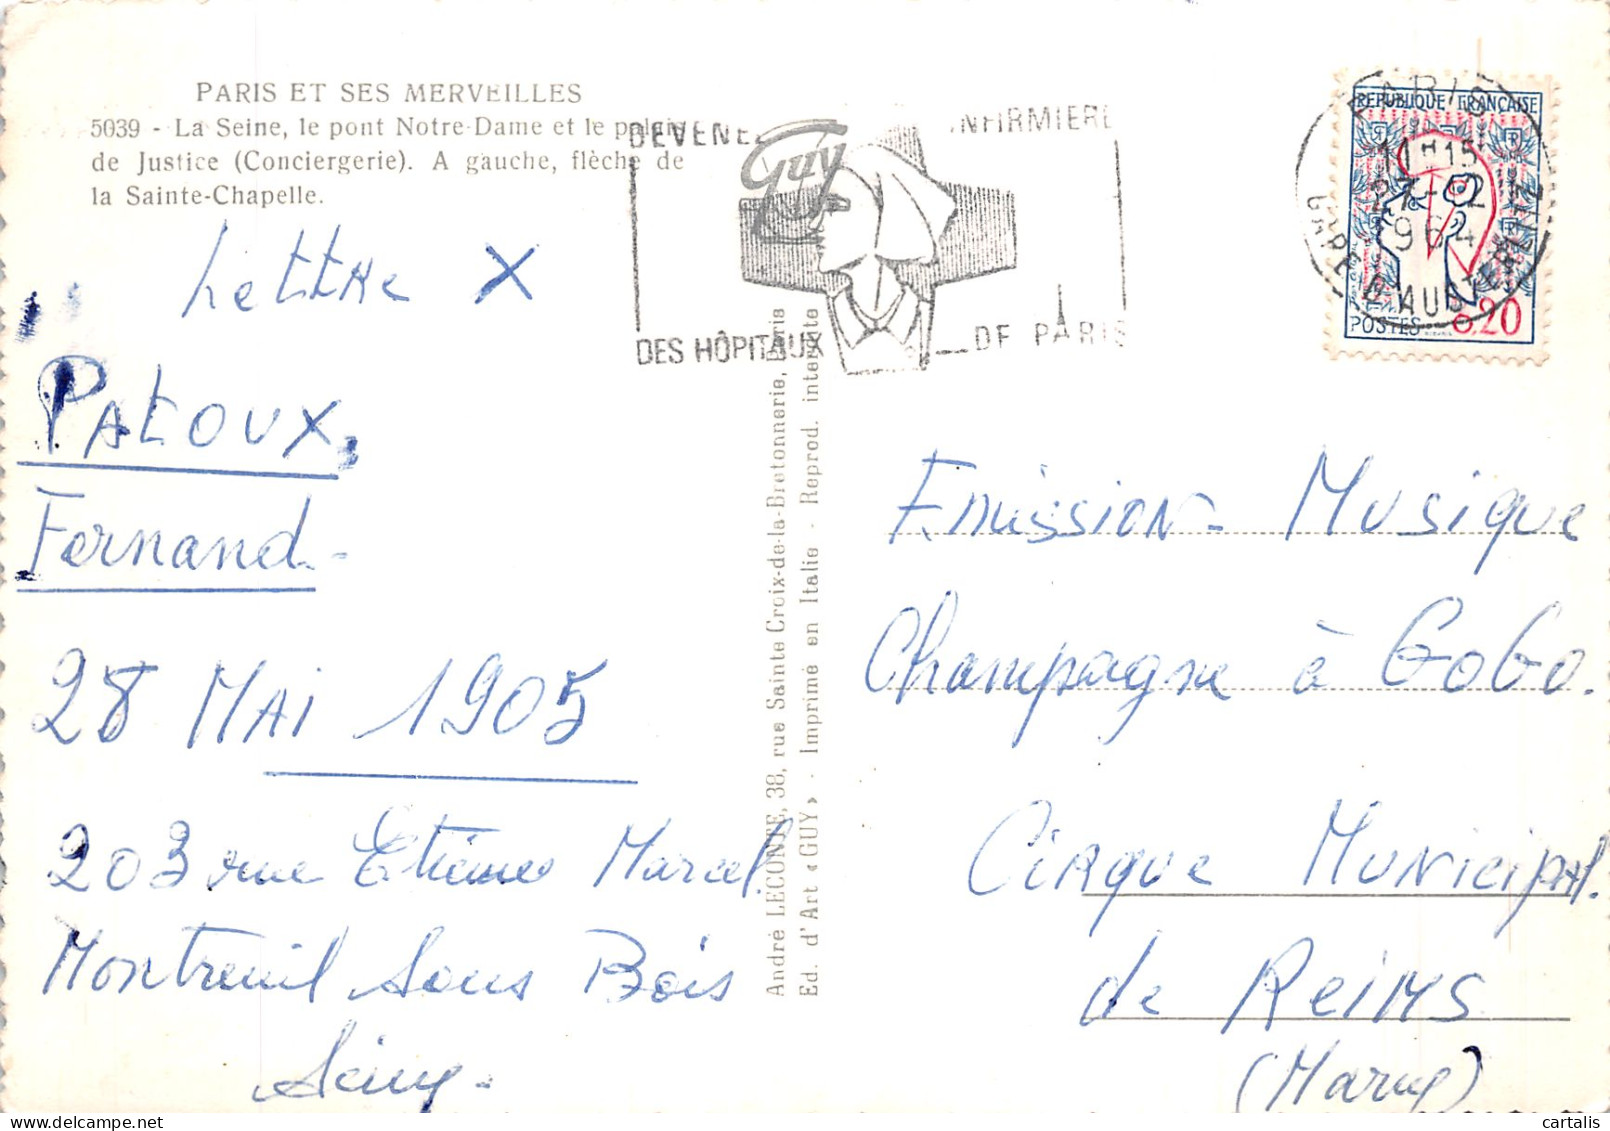 PARIS ET SES MERVEILLES
5039 - La Seine, le pont Notre-Dame et le palais
de Justice (Conciergerie). A gauche, flèche de
la Sainte-Chapelle.
Lettre X
PATOUX,
Fernand-
28 MAI 1905
203 rue Etienne Marcel.
Montreuil sous Bois
Seine-
Guy
DEVENEZ INFIRMIERE
DES HÔPITAUX DE PARIS
André LECONTE, 38, rue Sainte Croix-de-la-Bretonnerie, Paris
Ed. d'Art «GUY» - Imprimé en Italie - Reprod. interdite
REPUBLIQUE FRANÇAISE
POSTES 0.20
PARIS
GARE D'AUSTERLITZ
27-2
1964
Emission- Musique
Champagne à GoGo.
Cirque Municipal.
de Reims
(Marne)
cartalis